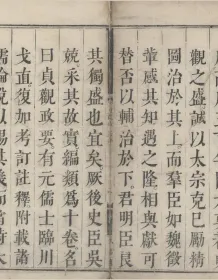 觀之盛誠以太宗克己勵精
圖治於其上而羣臣如魏徵
輩感其知遇之隆相與獻可
替否以輔治於下君明臣良
其獨盛也宜矣厥後史臣吳
兢采其故實編類爲十卷名
曰貞觀政要有元儒士臨川
戈直復加考訂註釋附載諸
儒論說以暢其義而當時大